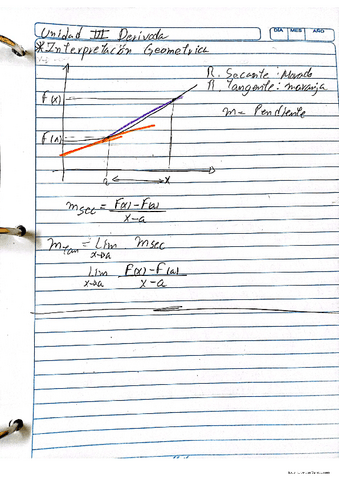 Unidad III Derivada
DIA MES AÑO
*Interpretación Geometrica
R. Secante: Morado
R. Tangente: naranja
m = Pendiente
F(x)
F(a)
a x
msec = F(x) - F(a) / x - a
mtan = Lim x→a msec
Lim x→a F(x) - F(a) / x - a